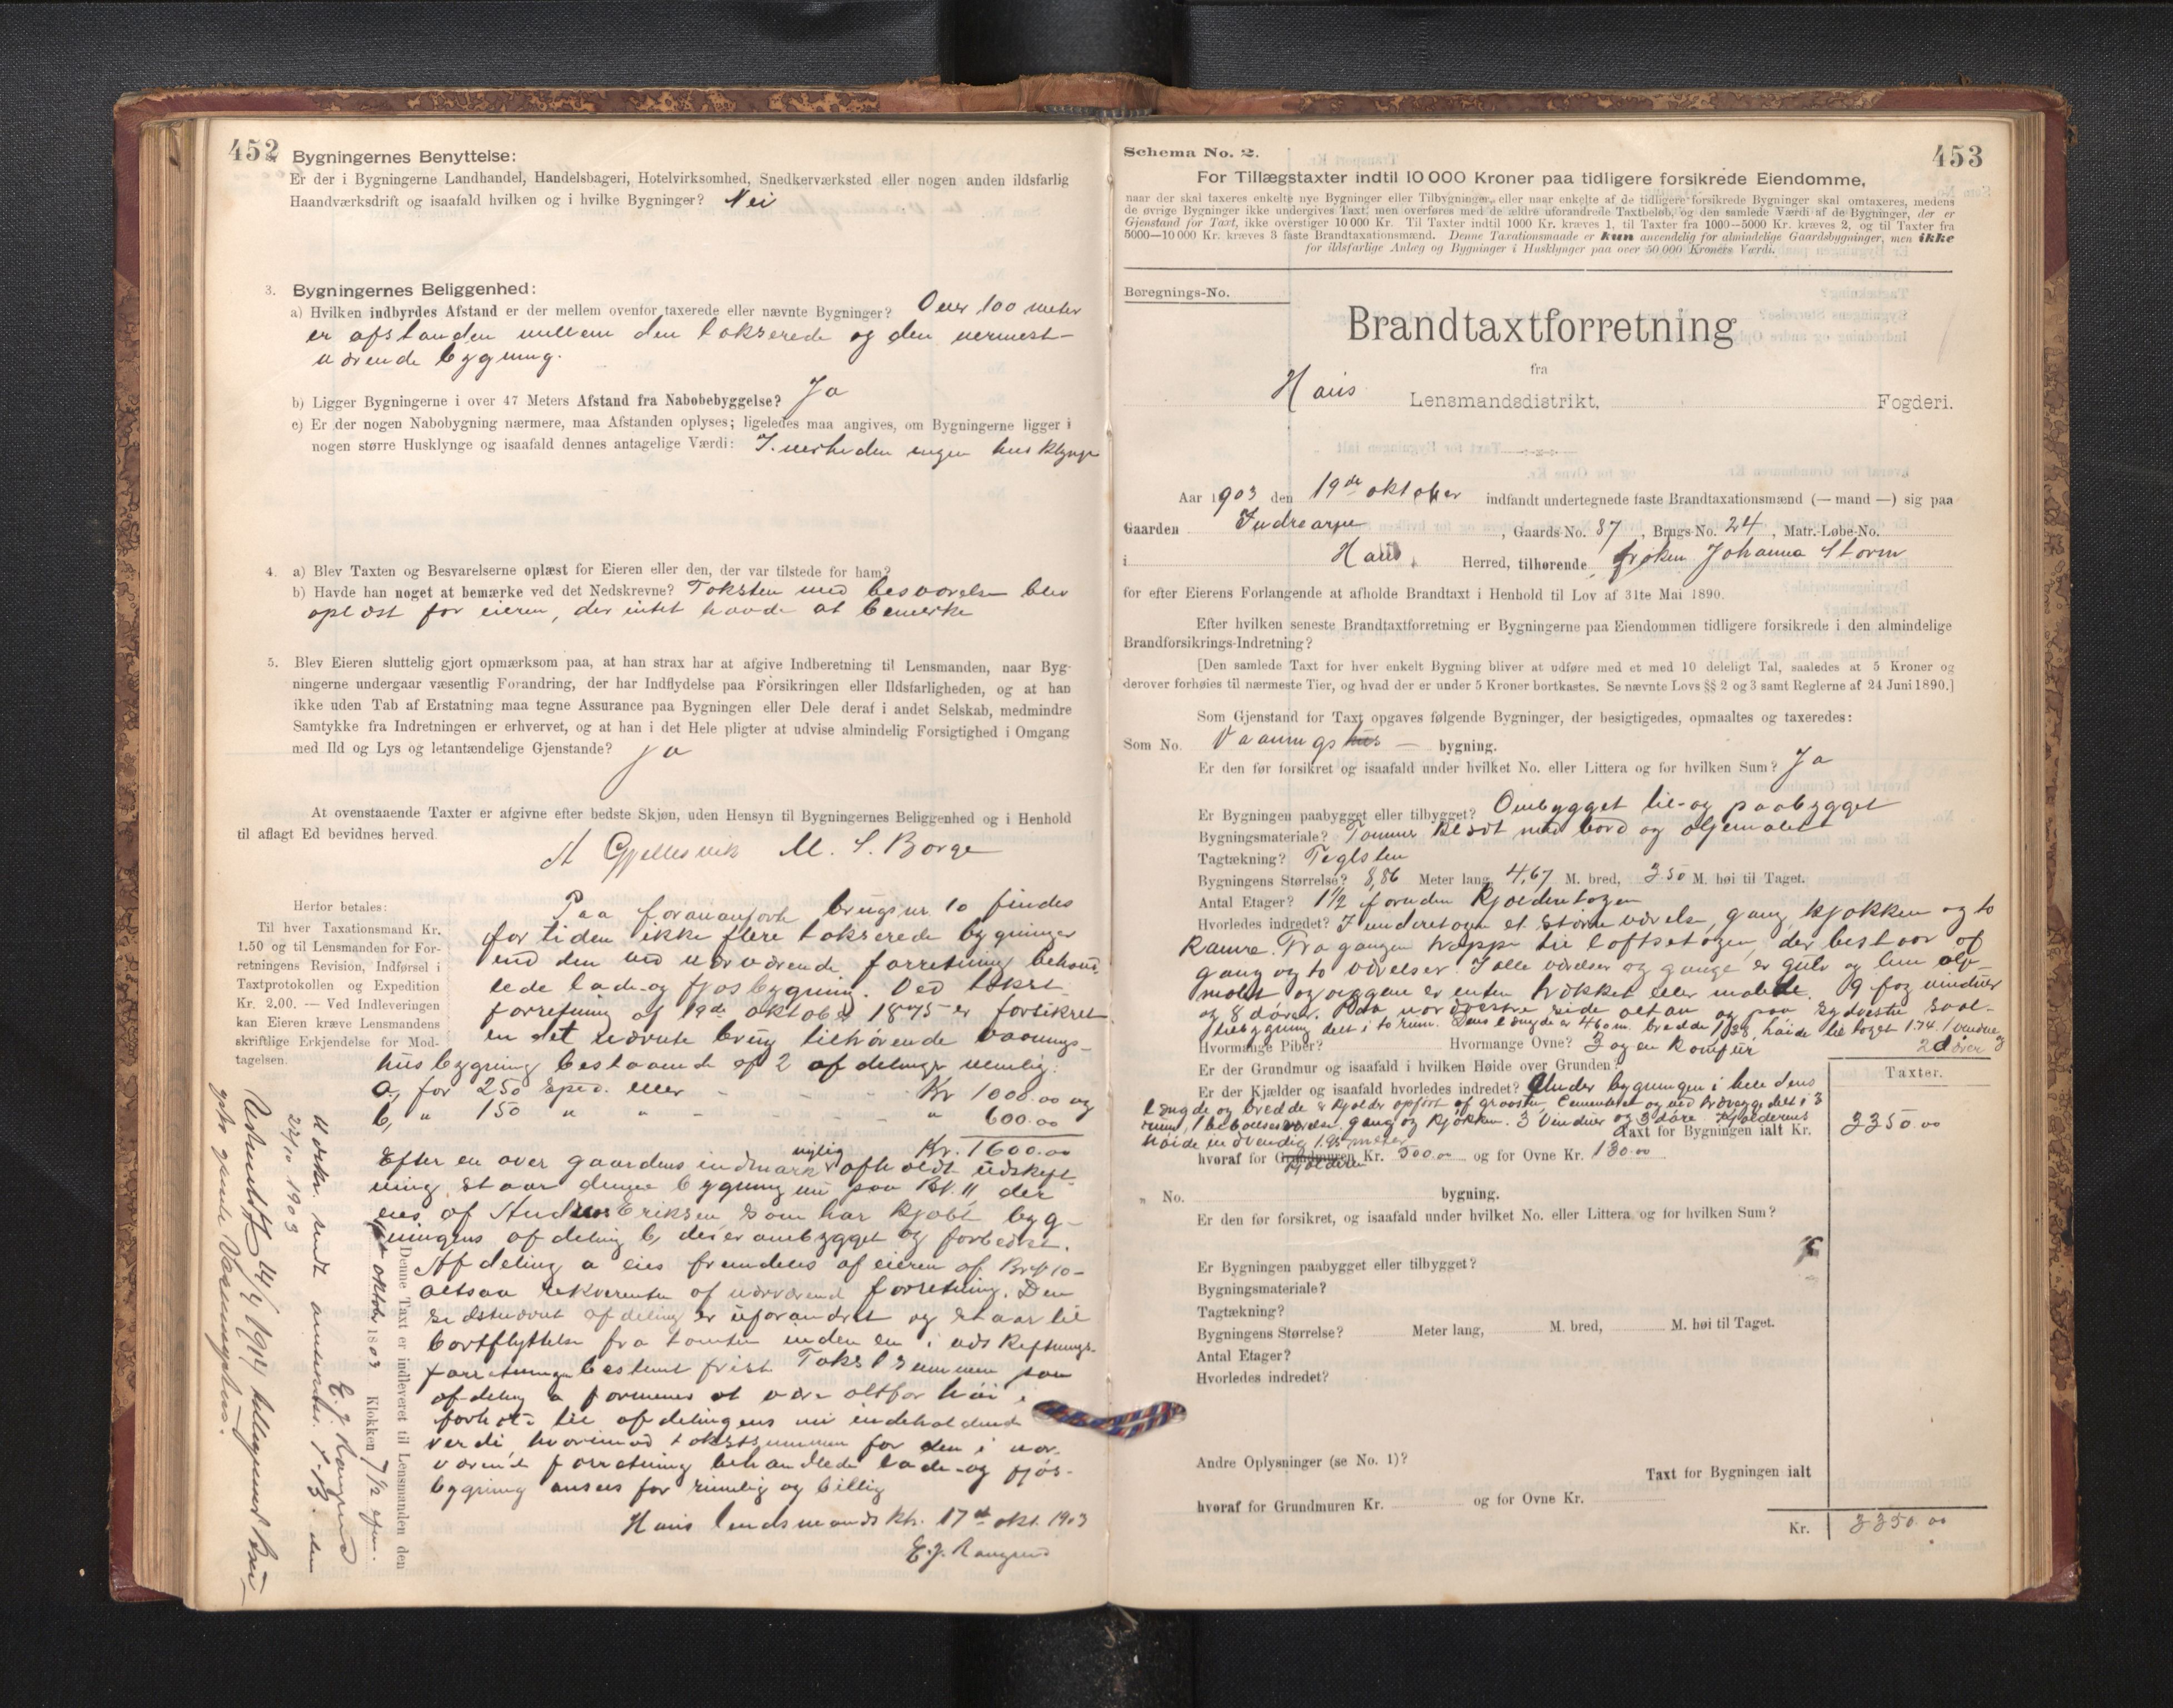 452
Bygningernes Benyttelse:
Er der i Bygningerne Landhandel, Handelsbageri, Hotelvirksomhed, Snedkerværksted eller nogen anden ildsfarlig
Haandværksdrift og isaafald hvilken og i hvilke Bygninger? Nei
3. Bygningernes Beliggenhed:
a) Hvilken indbyrdes Afstand er der mellem ovenfor taxerede eller nævnte Bygninger? Over 100 meter
er afstanden mellem den takserede og den nermest-
værende bygning.
b) Ligger Bygningerne i over 47 Meters Afstand fra Nabobebyggelse? Ja
c) Er der nogen Nabobygning nærmere, maa Afstanden oplyses; ligeledes maa angives, om Bygningerne ligger i
nogen større Husklynge og isaafald dennes antagelige Værdi: I nerheden ingen husklynge
4. a) Blev Taxten og Besvarelserne oplæst for Eieren eller den, der var tilstede for ham?
b) Havde han noget at bemærke ved det Nedskrevne? Taksten med besvarelse blev
oplæst for eieren, der intet havde at bemerke
5. Blev Eieren sluttelig gjort opmærksom paa, at han strax har at afgive Indberetning til Lensmanden, naar Byg-
ningerne undergaar væsentlig Forandring, der har Indflydelse paa Forsikringen eller Ildsfarligheden, og at han
ikke uden Tab af Erstatning maa tegne Assurance paa Bygningen eller Dele deraf i andet Selskab, medmindre
Samtykke fra Indretningen er erhvervet, og at han i det Hele pligter at udvise almindelig Forsigtighed i Omgang
med Ild og Lys og letantændelige Gjenstande? Ja
At ovenstaaende Taxter er afgivne efter bedste Skjøn, uden Hensyn til Bygningernes Beliggenhed og i Henhold
til aflagt Ed bevidnes herved.
A Gjellesvik M. S. Borge
Herfor betales:
Til hver Taxationsmand Kr.
1.50 og til Lensmanden for For-
retningens Revision, Indførsel i
Taxtprotokollen og Expedition
Kr. 2.00. — Ved Indleveringen
kan Eieren kræve Lensmandens
skriftlige Erkjendelse for Mod-
tagelsen.
Paa forananførte brugsnr. 10 findes
for tiden ikke flere takserede bygninger
end den ved nærværende forretning behand-
lede lade og fjøsbygning. Ved takst-
forretning af 19de oktober 1875 er forsikret
en det nævnte brug tilhørende vaanings-
husbygning bestaaende af 2 afdelinger nemlig:
a, for 250 Sped. eller - - - Kr 1000.00 og
b, " 150 " " - - - " 600.00
Kr. 1600.00
Efter en over gaardens indmark nylig afholdt udskift-
ning staar denne bygning nu paa Br. 11, der
eies af Anders Eriksen, som har kjøbt byg-
ningens afdeling b, der er ombygget og forbedret.
Afdeling a eies fremdeles af eieren af Br. 10 -
altsaa rekvirenten af nærværende forretning. Den
sidstnævnte afdeling er uforandret og staar til
bortflyttelse fra tomten inden en i udskiftnings-
forretningen bestemt frist. Takstsummen paa
afdeling a formenes at være altfor høi i
forhold til afdelingens nu indeholdende
verdi, hvorimod takstsummen for den i nær-
værende forretning behandlede lade- og fjøs-
bygning ansees for rimelig og billig
Haus lensmandsktr. 17de okt. 1903
E. J. Ramsund
Denne Taxt er indleveret til Lensmanden den
oktober 1903 Klokken 7 1/2 efm.
E. J. Ramsund
22/10 1903
453
Schema No. 2.
For Tillægstaxter indtil 10 000 Kroner paa tidligere forsikrede Eiendomme,
naar der skal taxeres enkelte nye Bygninger eller Tilbygninger, eller naar enkelte af de tidligere forsikrede Bygninger skal omtaxeres, medens
de øvrige Bygninger ikke undergives Taxt, men overføres med de ældre uforandrede Taxtbeløb, og den samlede Værdi af de Bygninger, der er
Gjenstand for Taxt, ikke overstiger 10 000 Kr. Til Taxter indtil 1000 Kr. kræves 1, til Taxter fra 1000—5000 Kr. kræves 2, og til Taxter fra
5000—10 000 Kr. kræves 3 faste Brandtaxationsmænd. Denne Taxationsmaade er kun anvendelig for almindelige Gaardsbygninger, men ikke
for ildsfarlige Anlæg og Bygninger i Husklynger paa over 50 000 Kroners Værdi.
Beregnings-No.
Brandtaxtforretning
fra
Haus Lensmandsdistrikt, Fogderi.
Aar 1903 den 19de oktober indfandt undertegnede faste Brandtaxationsmænd (— mand —) sig paa
Gaarden Indrearne, Gaards-No. 87, Brugs-No. 24, Matr.-Løbe-No.
i Haus Herred, tilhørende frøken Johanna Storm
for efter Eierens Forlangende at afholde Brandtaxt i Henhold til Lov af 31te Mai 1890.
Efter hvilken seneste Brandtaxtforretning er Bygningerne paa Eiendommen tidligere forsikrede i den almindelige
Brandforsikrings-Indretning?
[Den samlede Taxt for hver enkelt Bygning bliver at udføre med et med 10 deleligt Tal, saaledes at 5 Kroner og
derover forhøies til nærmeste Tier, og hvad der er under 5 Kroner bortkastes. Se nævnte Lovs §§ 2 og 3 samt Reglerne af 24 Juni 1890.]
Som Gjenstand for Taxt opgaves følgende Bygninger, der besigtigedes, opmaaltes og taxeredes:
Som No. Vaanings hus — bygning.
Er den før forsikret og isaafald under hvilket No. eller Littera og for hvilken Sum? Ja
Er Bygningen paabygget eller tilbygget? Ombygget til- og paabygget
Bygningsmateriale? Tømmer klædt med bord og oljemalet
Tagtækning? Teglsten
Bygningens Størrelse? 8,86 Meter lang, 4,67 M. bred, 3.50 M. høi til Taget.
Antal Etager? 1 1/2 foruden kjælderetagen
Hvorledes indredet? I underetagen et større værelse, gang, kjøkken og to
kamre. Fra gangen trappe til loftsetagen, der bestaar af
gang og to værelser. I alle værelser og gange er gulv og lem olje-
malet og væggene er enten trækket eller malede. 9 fag vinduer
og 8 døre. Paa nordvestre side altan og paa sydvestre
tilbygning delt i to rum. Dens længde er 4.60 m. bredde 1,28, høide til taget 1.74. 1 vindue og
Hvormange Piber? Hvormange Ovne? 3 og en komfür 2 døre
Er der Grundmur og isaafald i hvilken Høide over Grunden?
Er der Kjælder og isaafald hvorledes indredet? Under bygningen i hele dens
længde og bredde er kjelder opført af graasten, cementeret og ved trævægge delt i 3
rum, 1 beboelsesværelse, gang og kjøkken. 3 vinduer og 3 døre. Kjælderens
høide indvendig 1.95 meter
Taxter.
Taxt for Bygningen ialt Kr. 3350.00
hvoraf for Grundmuren Kjælderen Kr. 500.00 og for Ovne Kr. 130.00
" No. bygning.
Er den før forsikret, og isaafald under hvilket No. eller Littera og for hvilken Sum?
Er Bygningen paabygget eller tilbygget?
Bygningsmateriale?
Tagtækning?
Bygningens Størrelse? Meter lang, M. bred, M. høi til Taget.
Antal Etager?
Hvorledes indredet?
Andre Oplysninger (se No. 1)?
Taxt for Bygningen ialt
hvoraf for Grundmuren Kr. og for Ovne Kr.
Kr. 3350.00